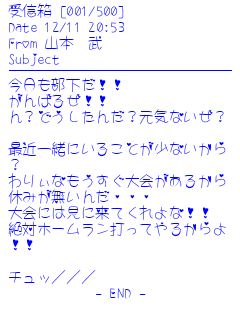 受信箱 [001/500]
Date 12/11 20:53
From 山本　武
Subject
今日も部下だ！！
がんばるぜ！！
ん？どうしたんだ？元気ないぜ？
最近一緒にいることが少ないから
？
わりぃなもうすぐ大会があるから
休みが無いんだ・・・
大会には見に来てくれよな！！
絶対ホームラン打ってやるからよ
！！
チュッ///
- END -